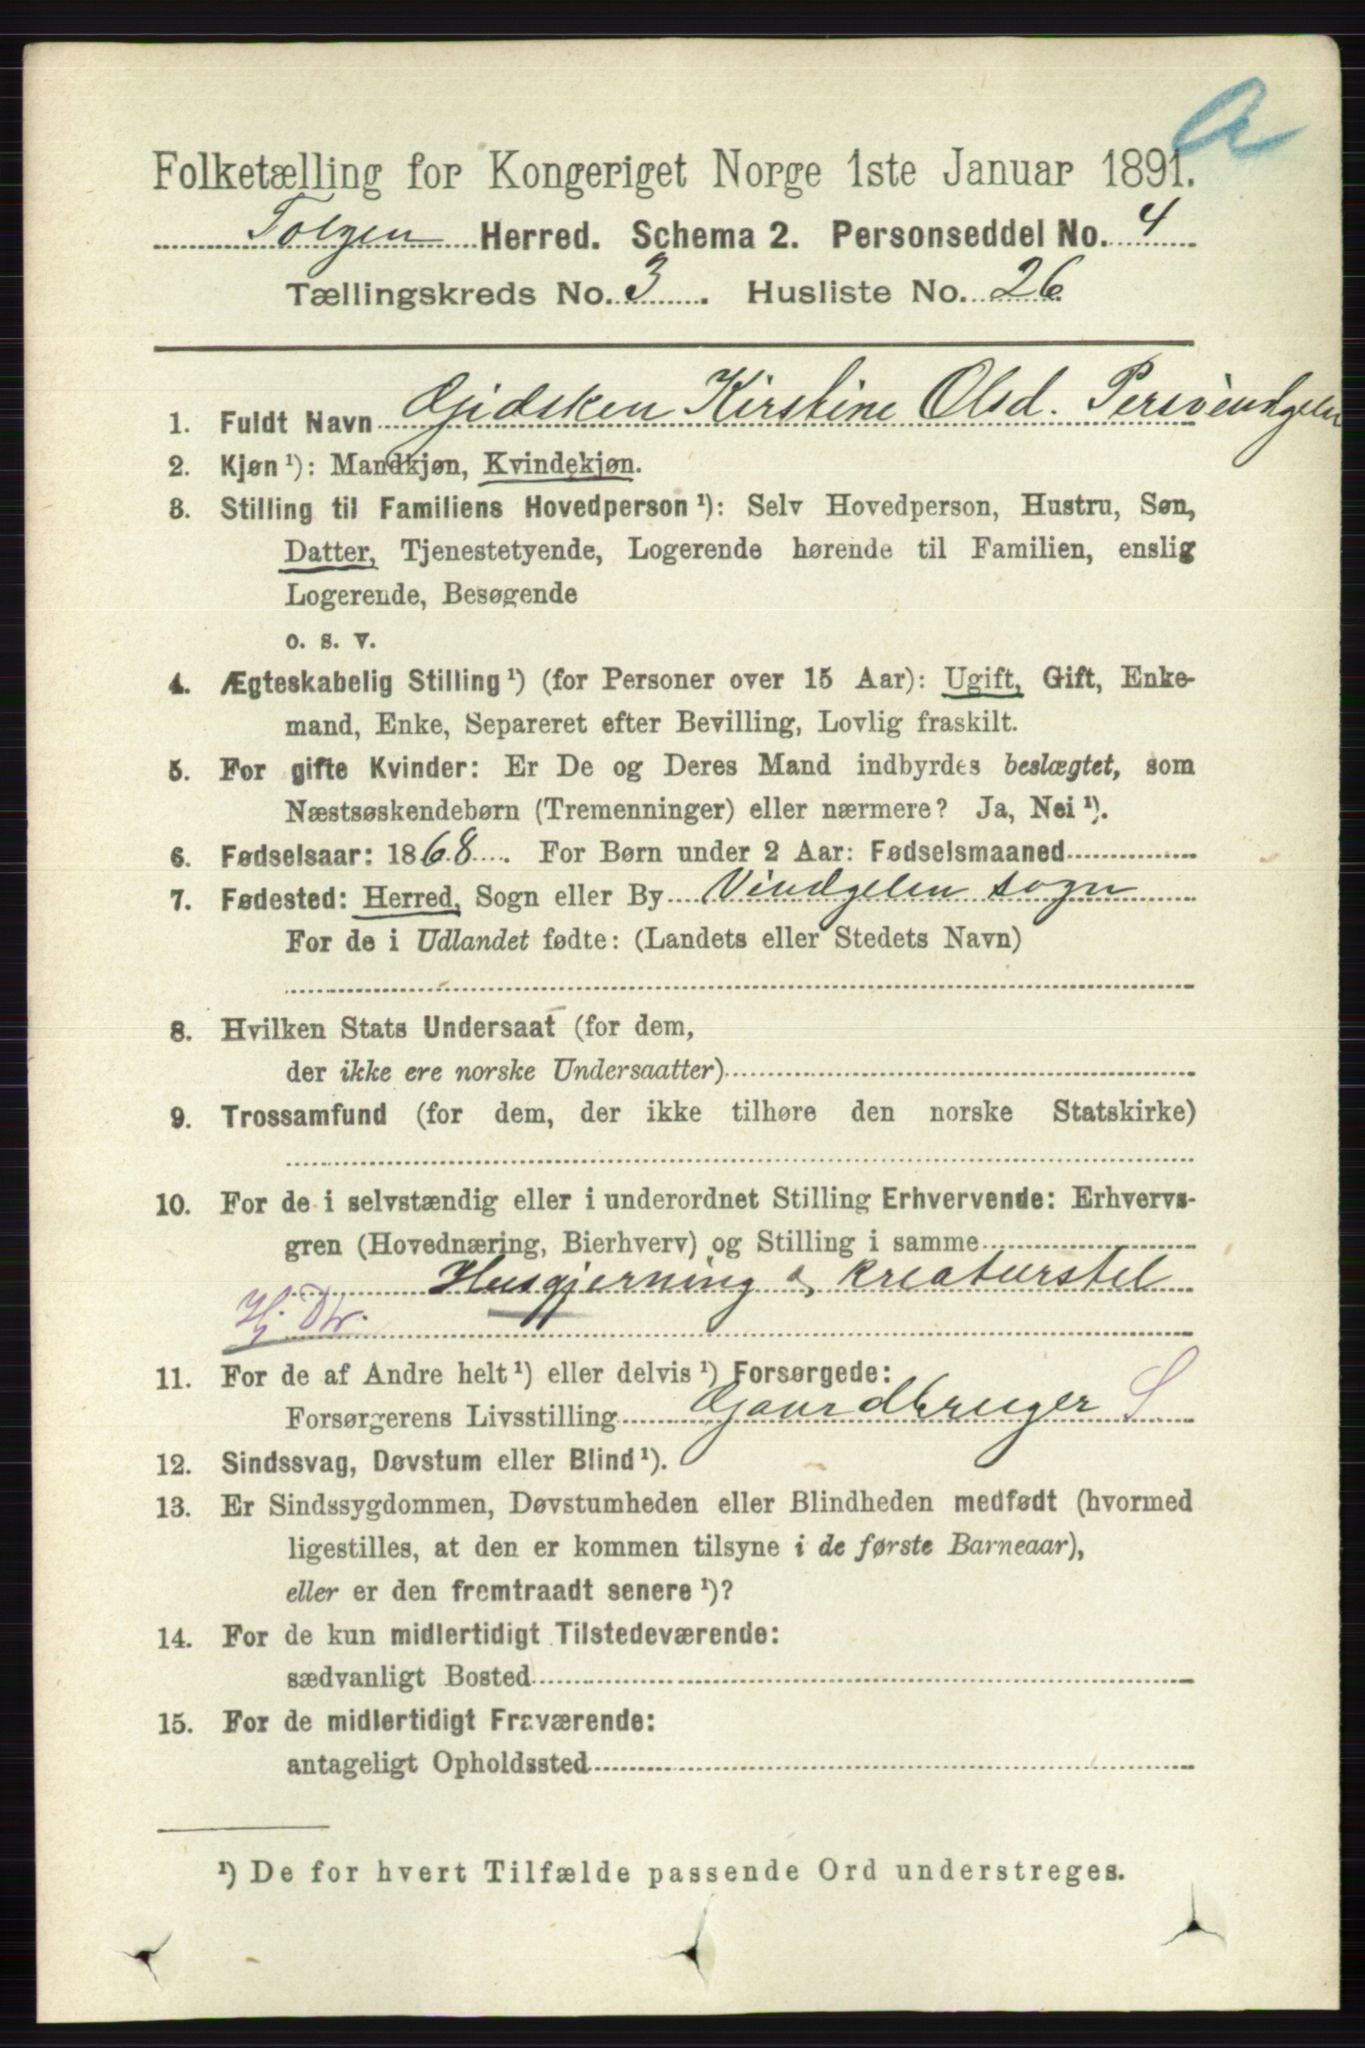 A
Folketælling for Kongeriget Norge 1ste Januar 1891.
Tolgen Herred. Schema 2. Personseddel No. 4
Tællingskreds No. 3. Husliste No. 26
1. Fuldt Navn Gjidsken Kirstine Olsd. Persvindgelen
2. Kjøn ¹): Mandkjøn, Kvindekjøn.
3. Stilling til Familiens Hovedperson ¹): Selv Hovedperson, Hustru, Søn,
Datter, Tjenestetyende, Logerende hørende til Familien, enslig
Logerende, Besøgende
o. s. v.
4. Ægteskabelig Stilling ¹) (for Personer over 15 Aar): Ugift, Gift, Enke-
mand, Enke, Separeret efter Bevilling, Lovlig fraskilt.
5. For gifte Kvinder: Er De og Deres Mand indbyrdes beslægtet, som
Næstsøskendebørn (Tremenninger) eller nærmere? Ja, Nei ¹).
6. Fødselsaar: 1868. For Børn under 2 Aar: Fødselsmaaned
7. Fødested: Herred, Sogn eller By Vindgelen sogn
For de i Udlandet fødte: (Landets eller Stedets Navn)
8. Hvilken Stats Undersaat (for dem,
der ikke ere norske Undersaatter)
9. Trossamfund (for dem, der ikke tilhøre den norske Statskirke)
10. For de i selvstændig eller i underordnet Stilling Erhvervende: Erhvervs-
gren (Hovednæring, Bierhverv) og Stilling i samme
Husgjerning & kreaturstel
Hj. Dtr.
11. For de af Andre helt ¹) eller delvis ¹) Forsørgede:
Forsørgerens Livsstilling Gaardbruger S
12. Sindssvag, Døvstum eller Blind ¹).
13. Er Sindssygdommen, Døvstumheden eller Blindheden medfødt (hvormed
ligestilles, at den er kommen tilsyne i de første Barneaar),
eller er den fremtraadt senere ¹)?
14. For de kun midlertidigt Tilstedeværende:
sædvanligt Bosted
15. For de midlertidigt Fraværende:
antageligt Opholdssted
¹) De for hvert Tilfælde passende Ord understreges.